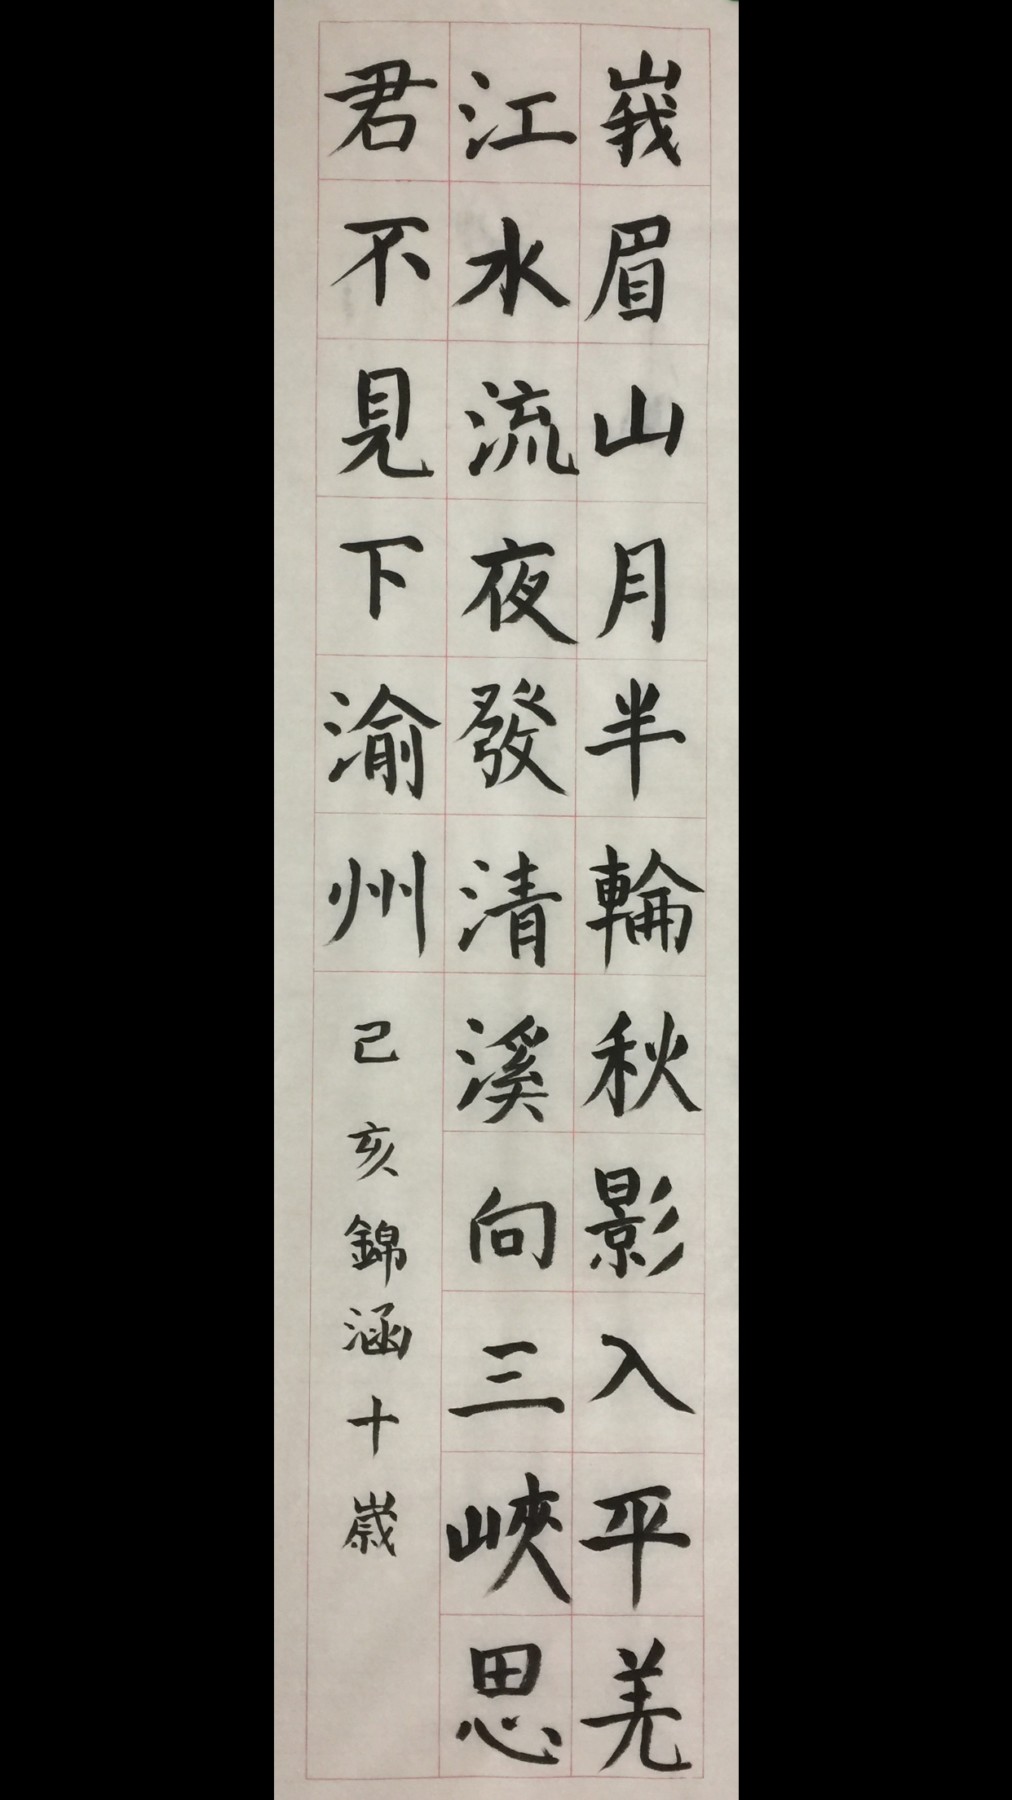 峩眉山月半輪秋影入平羌
江水流夜發清溪向三峽思
君不見下渝州
己亥錦涵十歲